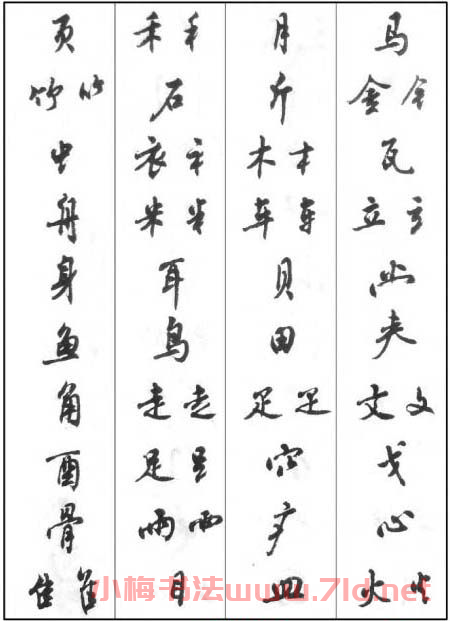 马金金瓦立立夫文文戈心火火
月斤木木车车贝田足足穴疒皿
禾禾石衣衤米米耳鸟走走足雨雨目
页竹竹虫舟身鱼角酉骨隹隹
小梅书法www.7ld.net